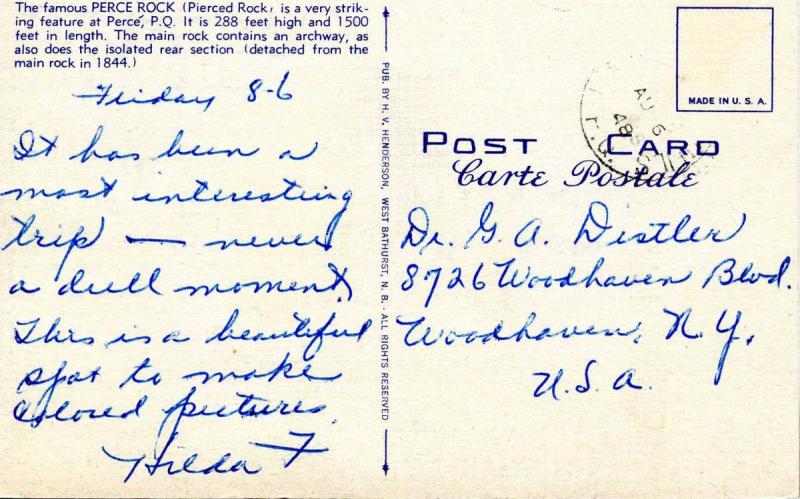 The famous PERCE ROCK (Pierced Rock) is a very strik-
ing feature at Perce, P.Q. It is 288 feet high and 1500
feet in length. The main rock contains an archway, as
also does the isolated rear section (detached from the
main rock in 1844.)
Friday 8-6
It has been a
most interesting
trip — never
a dull moment.
This is a beautiful
spot to make
colored pictures.
Hilda F
PUB. BY H. V. HENDERSON, WEST BATHURST, N. B. - ALL RIGHTS RESERVED
MADE IN U. S. A.
AU 6
48
POST CARD
Carte Postale
Dr. G. A. Distler
8726 Woodhaven Blvd.
Woodhaven, N.Y.
U.S.A.